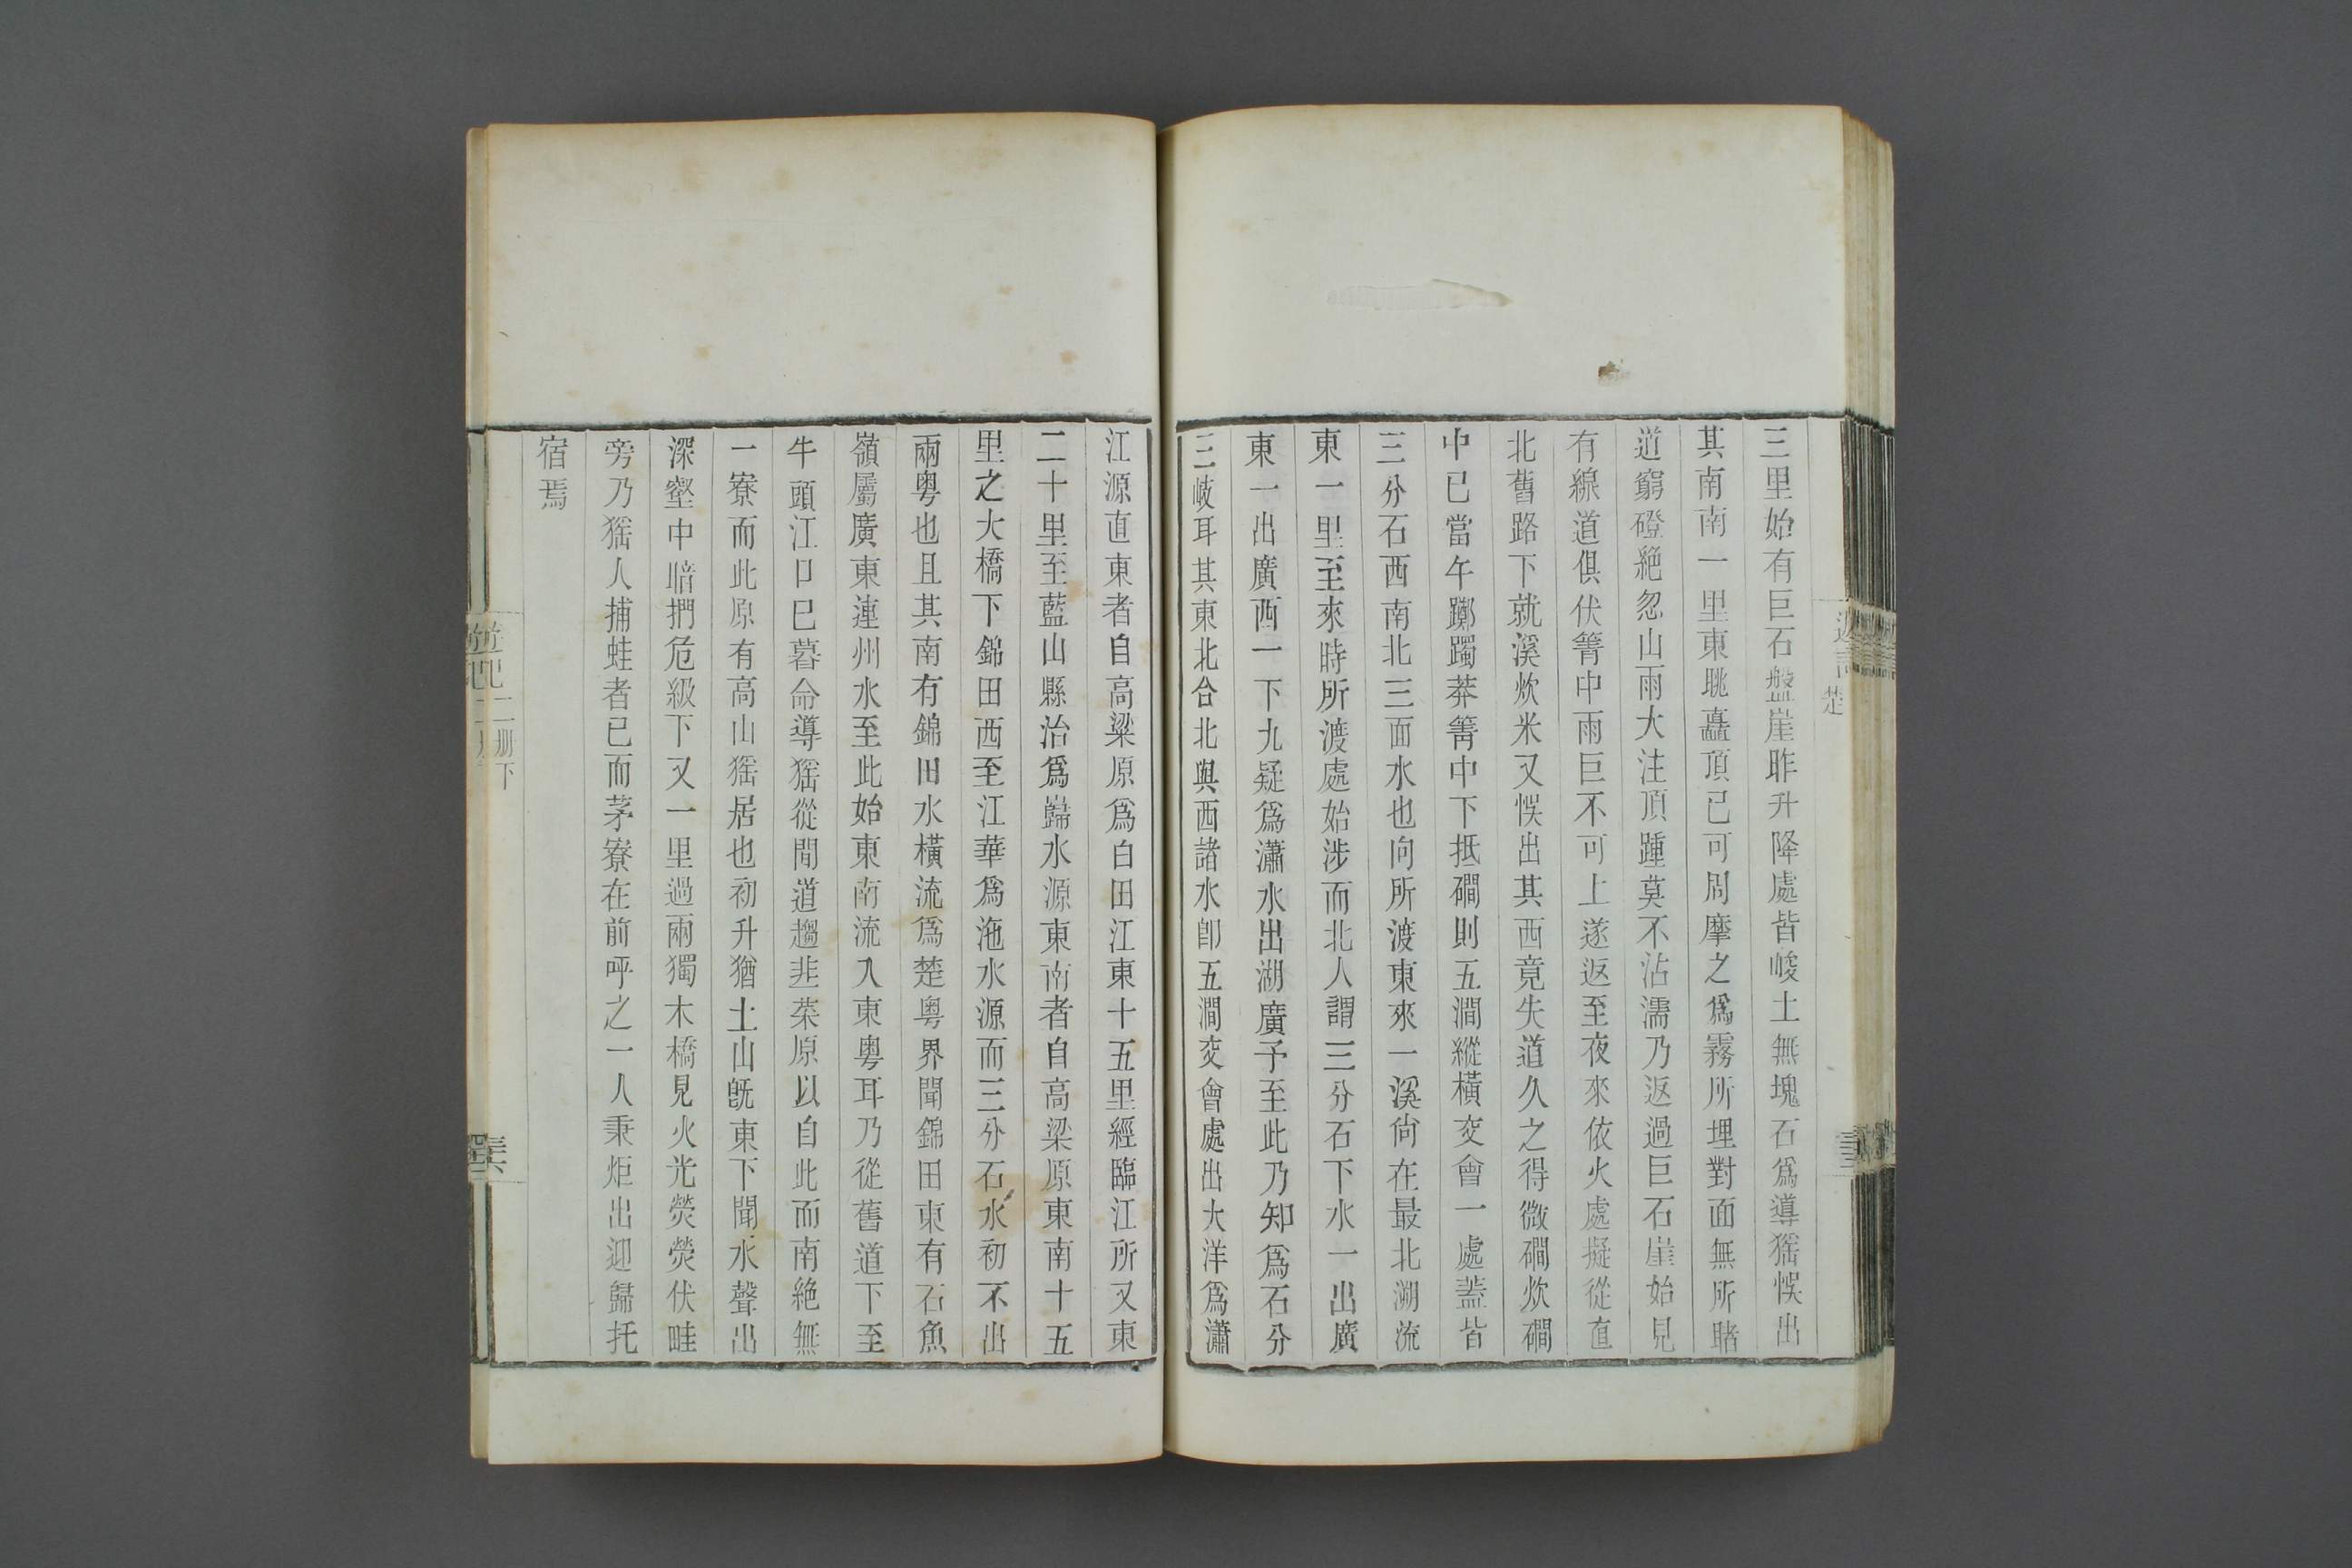 三里始有巨石盤崖昨升降處皆峻土無塊石爲導猺悞出
其南南一里東眺矗頂已可周摩之爲霧所埋對面無所睹
道窮磴絶忽山雨大注頂踵莫不沾濡乃返過巨石崖始見
有線道俱伏箐中雨巨不可上遂返至夜來依火處擬從直
北舊路下就溪炊米又悞出其西竟失道久之得微磵炊磵
中已當午躑躅莽箐中下抵磵則五澗縱橫交會一處蓋皆
三分石西南北三面水也向所渡東來一溪尙在最北溯流
東一里至來時所渡處始涉而北人謂三分石下水一出廣
東一出廣西一下九疑爲瀟水出湖廣予至此乃知爲石分
三岐耳其東北合北與西諸水卽五澗交會處出大洋爲瀟
江源直東者自高梁原爲白田江東十五里經臨江所又東
二十里至藍山縣治爲巋水源東南者自高梁原東南十五
里之大橋下錦田西至江華爲沲水源而三分石水初不出
兩粵也且其南有錦田水橫流爲楚粵界聞錦田東有石魚
嶺屬廣東連州水至此始東南流入東粵耳乃從舊道下至
牛頭江口巳暮命導猺從間道趨韭菜原以自此而南絶無
一寮而此原有高山猺居也初升猶土山旣東下聞水聲出
深壑中暗捫危級下又一里過兩獨木橋見火光熒熒伏畦
旁乃猺人捕蛙者已而茅寮在前呼之一人秉炬出迎歸托
宿焉
二册下